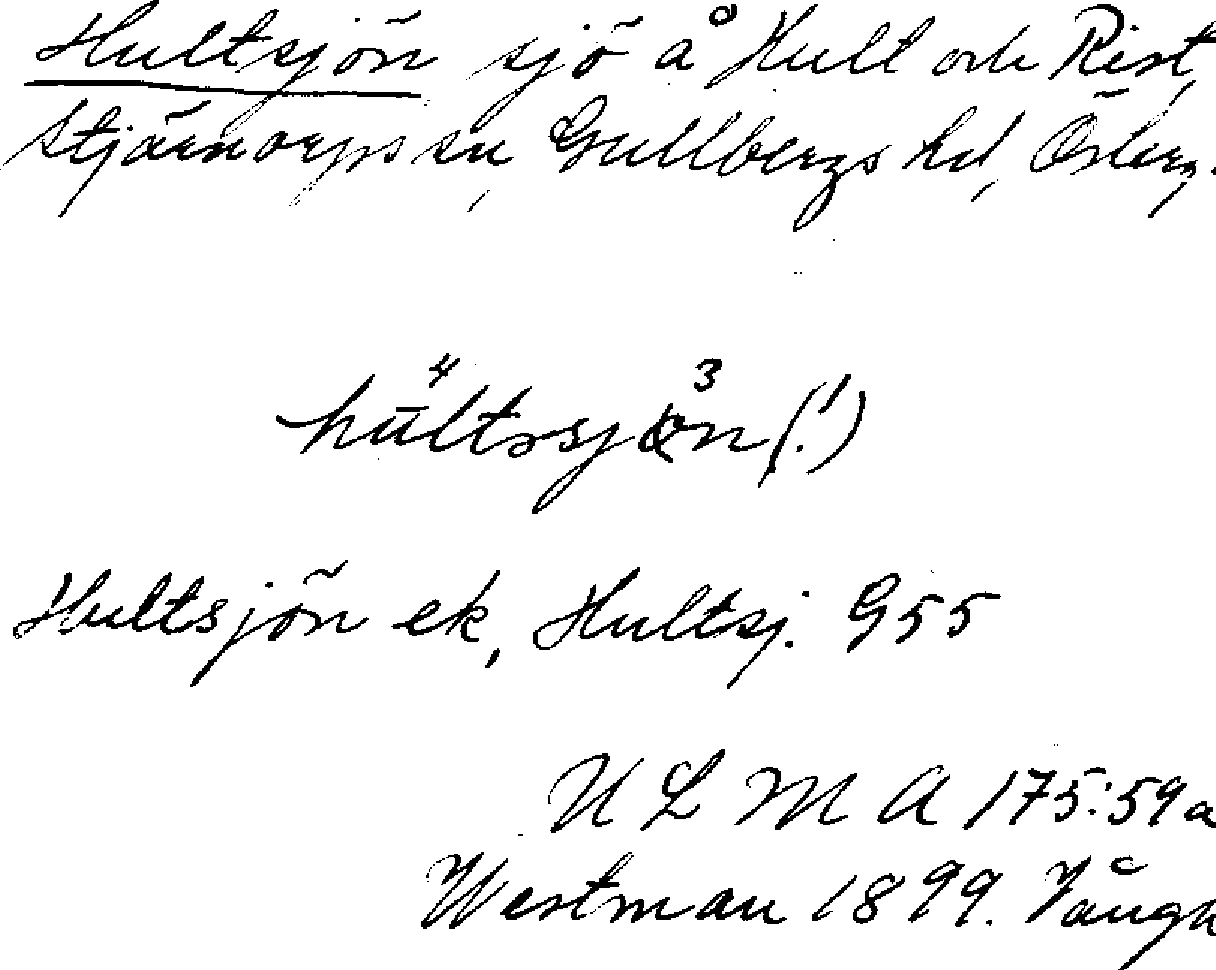 Hultsjön sjö å Hult och Rist,
Stjärnorps sn, Gullbergs hd, Österg.
hu⁴ltssjö³n (!)
Hultsjön ek, Hultsj. G55
U L M A 175:59a
Westman 1899.